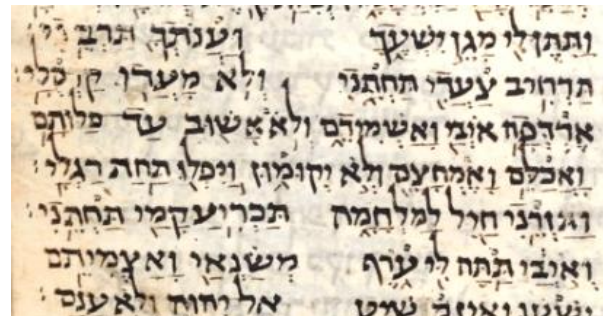 וַתִּתֶּן לִי מָגֵן יִשְׁעֶךָ וַעֲנֹתְךָ תַּרְבֵּנִי׃
תַּרְחִיב צַעֲדִי תַּחְתֵּנִי וְלֹא מָעֲדוּ קַרְסֻלָּי׃
אֶרְדְּפָה אֹיְבַי וָאַשְׁמִידֵם וְלֹא אָשׁוּב עַד כַּלּוֹתָם׃
וָאֲכַלֵּם וָאֶמְחָצֵם וְלֹא יְקוּמוּן וַיִּפְּלוּ תַּחַת רַגְלָי׃
וַתַּזְרֵנִי חַיִל לַמִּלְחָמָה תַּכְרִיעַ קָמַי תַּחְתֵּנִי׃
וְאֹיְבַי תַּתָּה לִּי עֹרֶף מְשַׂנְאַי וָאַצְמִיתֵם׃
יִשְׁעוּ וְאֵין מֹשִׁיעַ אֶל יְהוָה וְלֹא עָנָם׃